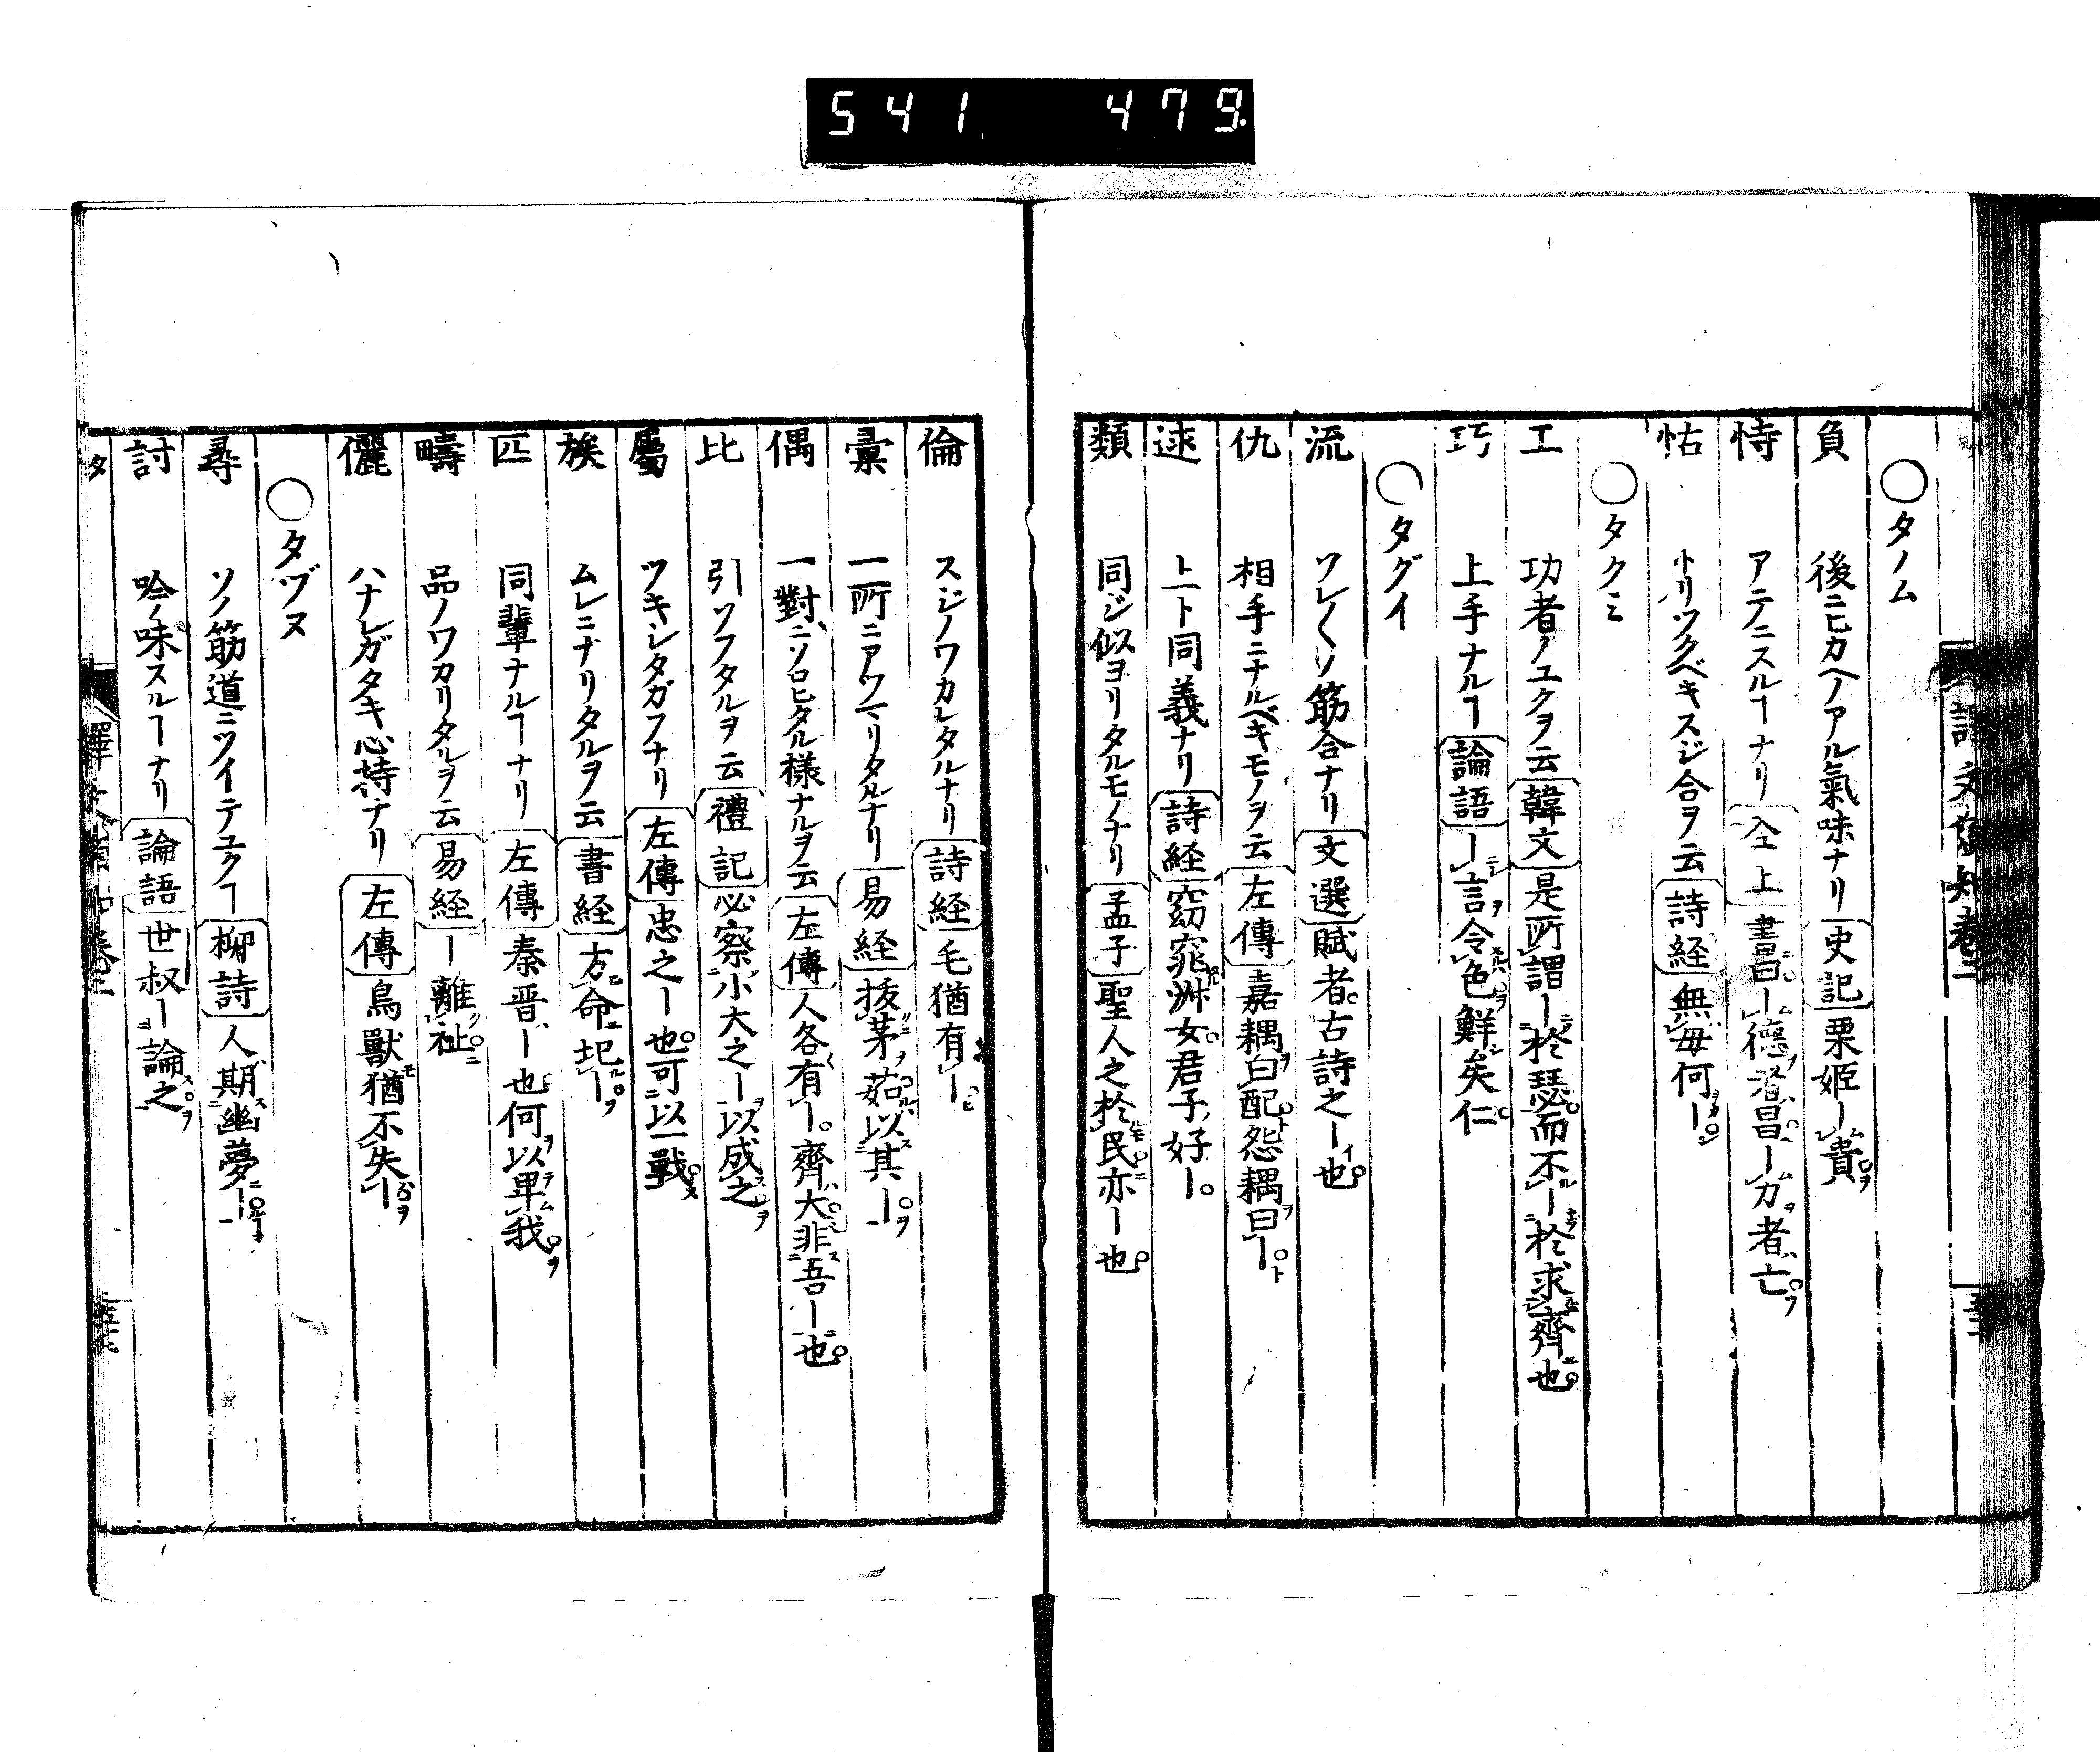 541 479.
〇タノム
負 後ニヒカヘノアル氣味ナリ 史記 栗姫ー貴
恃 アテニスルヿナリ 仝上 書曰ー德者昌ー力者亡
怙 トリツクベキスジ合ヲ云 詩経 無毎何ー
〇タクミ
工 功者ノユクヲ云 韓文 是所謂ー於瑟而不ー於求齊也
巧 上手ナルヿ 論語 ー言令色鮮矣仁
〇タグイ
流 ソレ〱ノ筋合ナリ 文選 賦者古詩之ー也
仇 相手ニナルベキモノヲ云 左傳 嘉耦曰配怨耦曰ー
逑 上ト同義ナリ 詩経 窈窕淑女君子好ー
類 同ジ似ヨリタルモノナリ 孟子 聖人之於民亦ー也
倫 スジノワカレタルナリ 詩経 毛猶有ー
彙 一所ニアツマリタルナリ 易経 拔茅茹以其ー
偶 一對ニソロヒタル様ナルヲ云 左傳 人各有ー齊大非吾ー也
比 引ソフタルヲ云 禮記 必察小大之ー以成之
屬 ツキシタガフナリ 左傳 忠之ー也可以一戰
族 ムレニナリタルヲ云 書経 方命圮ー
匹 同輩ナルヿナリ 左傳 秦晋ー也何以卑我
疇 品ノワカリタルヲ云 易経 ー離祉
儷 ハナレガタキ心持ナリ 左傳 鳥獸猶不失ー
〇タヅヌ
尋 ソノ筋道ニツイテユクヿ 柳詩 人期幽夢ー
討 吟味スルヿナリ 論語 世叔ー論之
タ